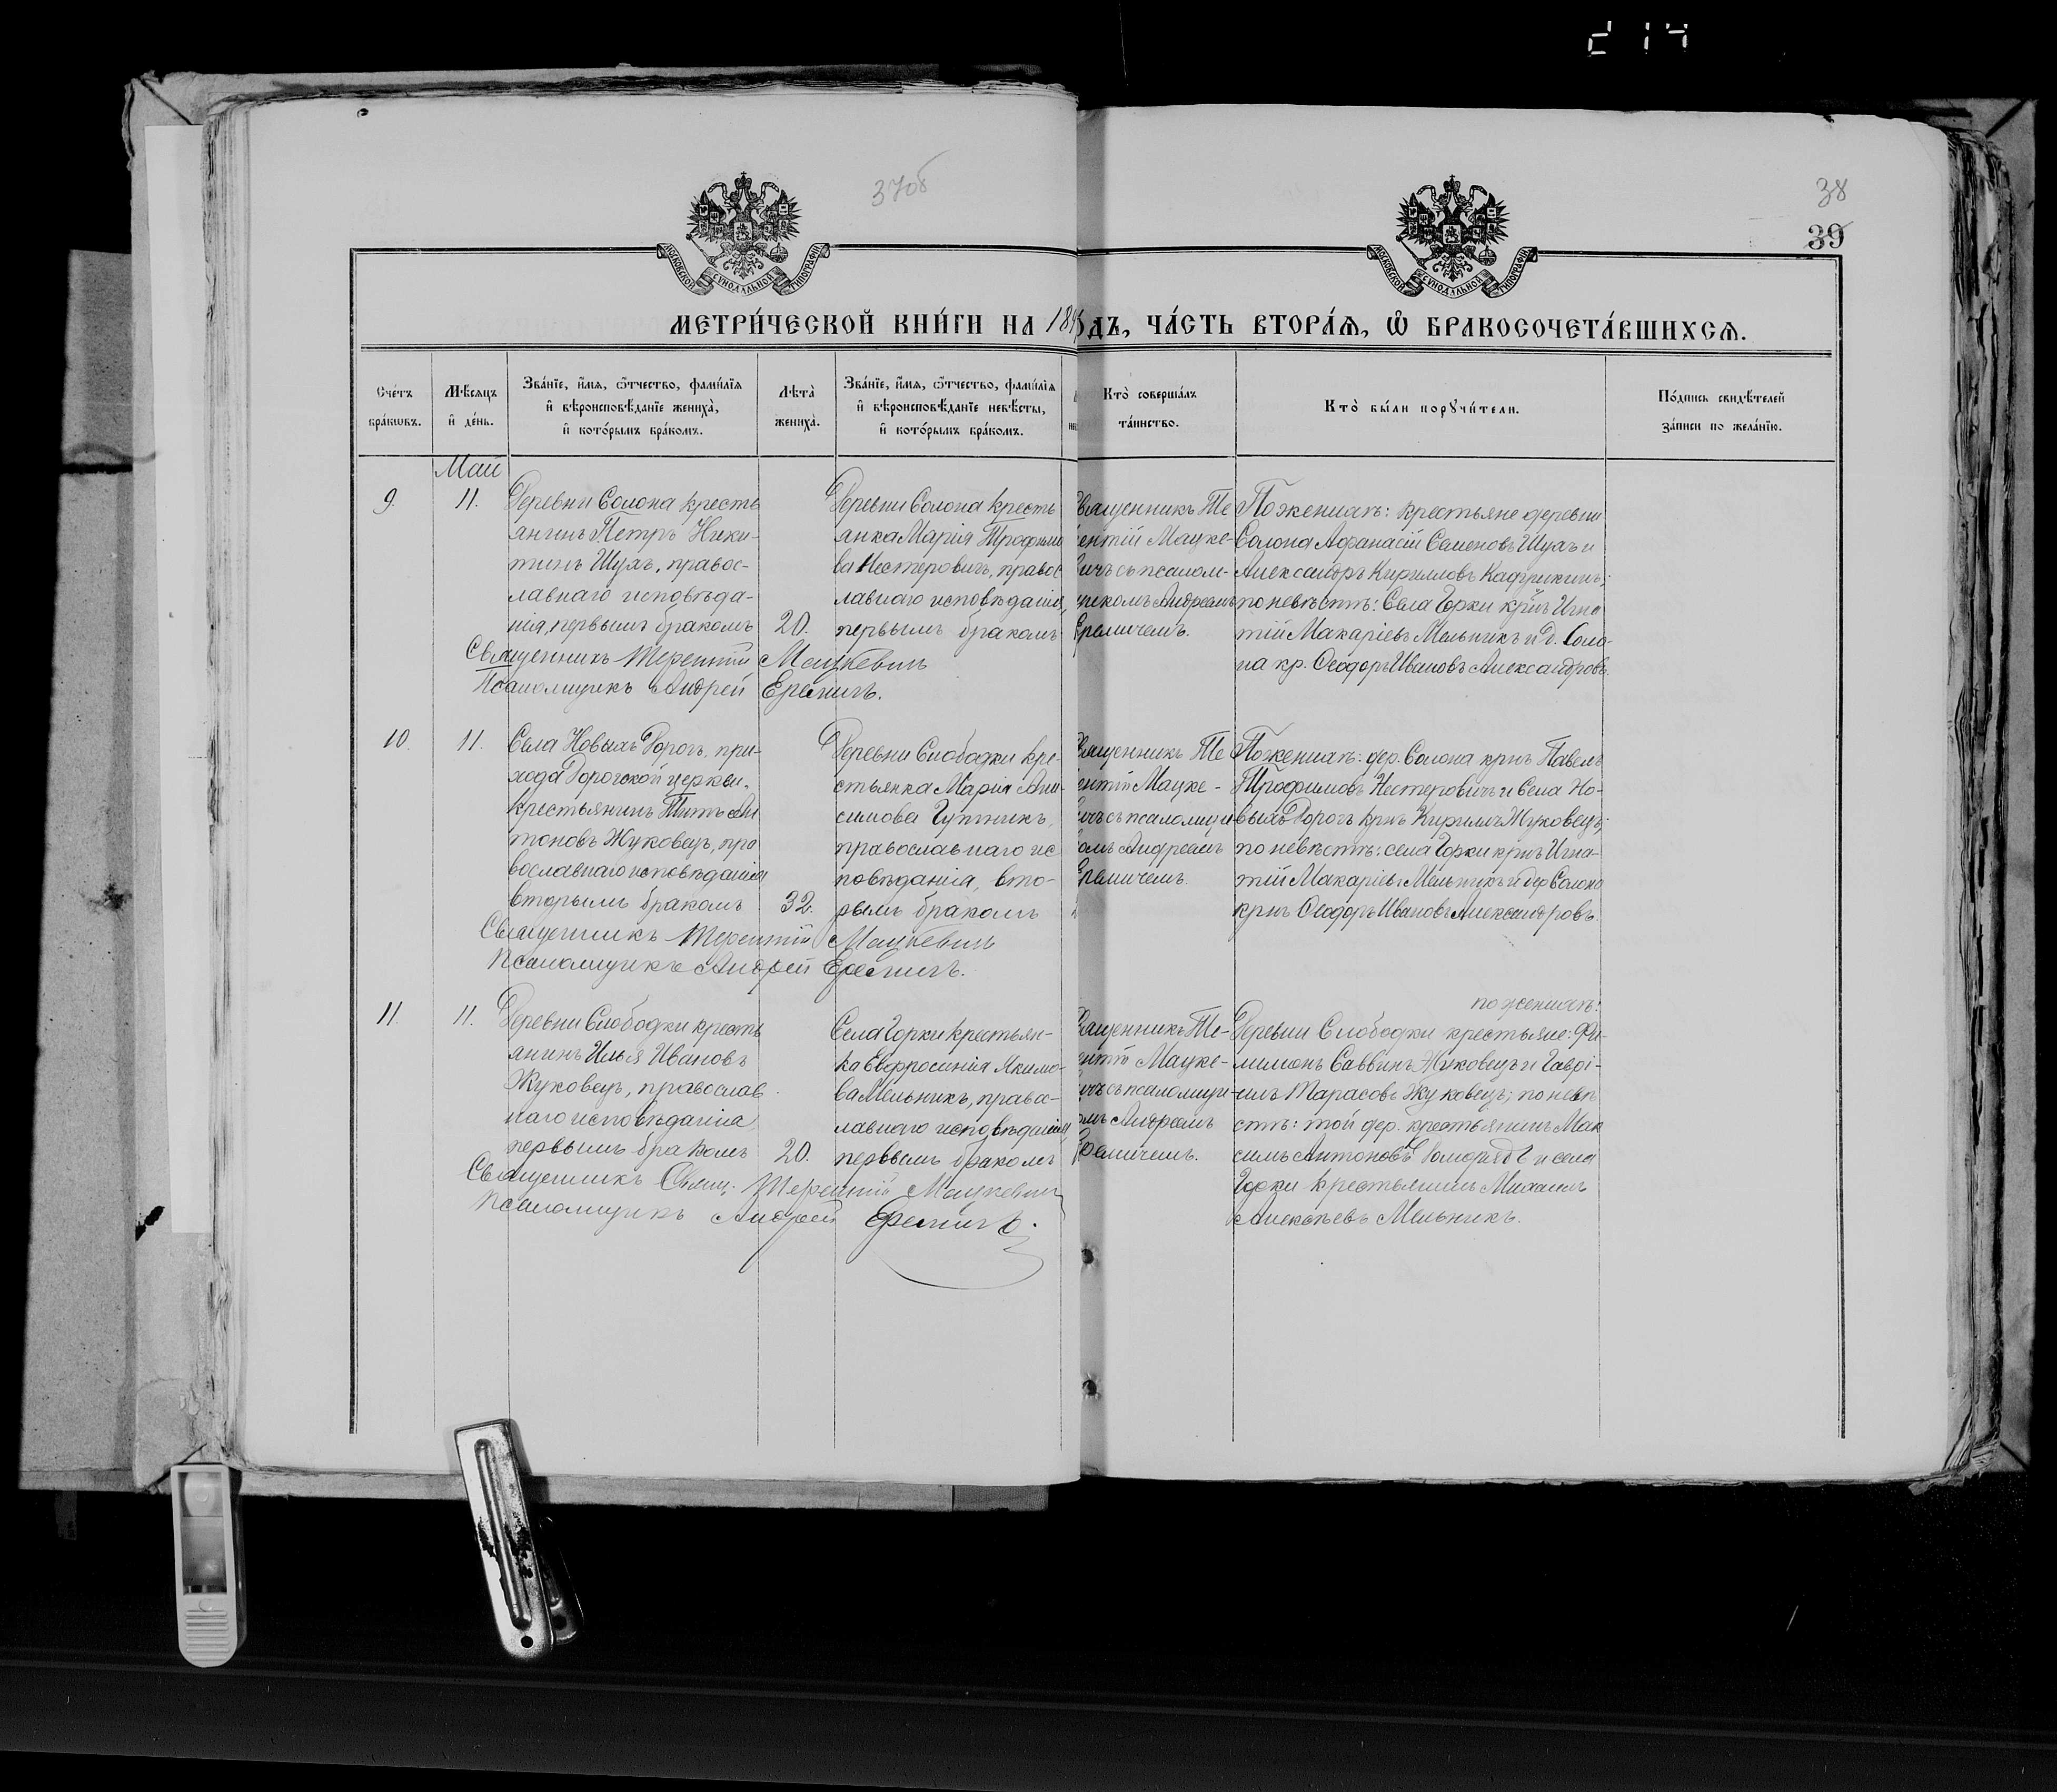 214
37об
38
39
МОСКОВСКОЙ СѴНОДАЛЬНОЙ ТИПОГРАФІИ
МОСКОВСКОЙ СѴНОДАЛЬНОЙ ТИПОГРАФІИ
МЕТРИ́ЧЕСКОЙ КНИ́ГИ НА 189
ДЪ, ЧА́СТЬ ВТОРА́Ѧ, Ѽ БРАКОСОЧЕТА́ВШИХСѦ.
Сче́тъ
бра́кωвъ.
Мѣ́сѧцъ
и҆ де́нь.
Зва́нїе, и҆́мѧ, ѻ҆́тчество, фами́лїѧ
и҆ вѣроисповѣ́данїе жениха̀,
и҆ кото́рымъ бра́комъ.
Лѣ́та̀
жениха̀.
Зва́нїе, и҆́мѧ, ѻ҆́тчество, фами́лїѧ
и҆ вѣроисповѣ́данїе невѣ́сты,
и҆ кото́рымъ бра́комъ.
Кто̀ соверша́лъ
та́инство.
Кто̀ бы́ли порꙋчи́тели.
По́дпись свидѣ́телей
за́писи по жела́нїю.
Май
9.
11.
Деревни Солона кресть
янинъ Петръ Ники-
тинъ Шухъ, правос-
лавнаго исповѣда-
нія, первымъ бракомъ
20.
Деревни Солона кресть
янка Марія Трофимо
ва Нестеровичъ, правос
лавнаго исповѣданія,
первымъ бракомъ
Священникъ Те
рентій Мацке-
вичъ съ псалом-
щикомъ Андреемъ
Еремичемъ.
По женихѣ: крестьяне деревни
Солона Афанасій Семеновъ Шухъ и
Александръ Кирилловъ
по невѣстѣ: Села Горки крнъ Игна
тій Макаріевъ Мельникъ и д. Соло-
на кр. Ѳеодоръ Ивановъ Александровъ.
Священникъ Терентій Мацкевичъ
Псаломщикъ Андрей Еремичъ.
10.
11.
Села Новыхъ Дорогъ, при-
хода Дорогской церкви,
крестьянинъ Титъ Ан
тоновъ Жуковецъ, пра
вославнаго исповѣданія
вторымъ бракомъ
32.
Деревни Слободки кре-
стьянка Марія Ани-
симова Гутникъ,
православнаго ис
повѣданія, вто-
рымъ бракомъ
Священникъ Те
рентій Мацке-
вичъ съ псаломщи
комъ Андреемъ
Еремичемъ.
По женихѣ: дер. Солона крнъ Павелъ
Трофимовъ Нестеровичъ и села Но-
выхъ Дорогъ крнъ Кириллъ Жуковецъ;
по невѣстѣ: села Горки крнъ Игна-
тій Макаріевъ Мельникъ и дер Солона
крнъ Ѳеодоръ Ивановъ Александровъ.
Священникъ Терентій Мацкевичъ
Псаломщикъ Андрей Еремичъ.
11.
11.
Деревни Слободки кресть
янинъ Илья Ивановъ
Жуковецъ, православ
наго исповѣданія
первымъ бракомъ
20.
Села Горки крестьян-
ка Евфросинія Якимо-
ва Мельникъ, правос-
лавнаго исповѣданія,
первымъ бракомъ
Священникъ Те-
рентій Мацке-
вичъ съ псаломщи-
комъ Андреемъ
Еремичемъ.
по женихѣ:
Деревни Слободки крестьяне: Фи-
лимонъ Саввинъ Жуковецъ и Гаврі-
илъ Тарасовъ Жуковецъ; по невѣ
стѣ: той дер. крестьянинъ Мак
симъ Антоновъ и села
Горки крестьянинъ Михаилъ
Алексѣевъ Мельникъ.
Священникъ Свящ. Терентій Мацкевичъ
Псаломщикъ Андрей Еремичъ.